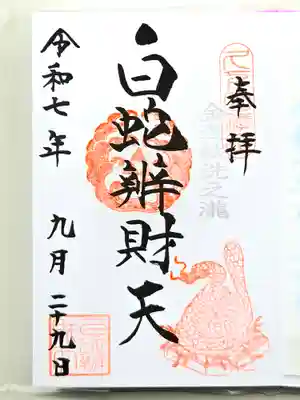 奉拝
白蛇辨財天
令和七年 九月 二十九日